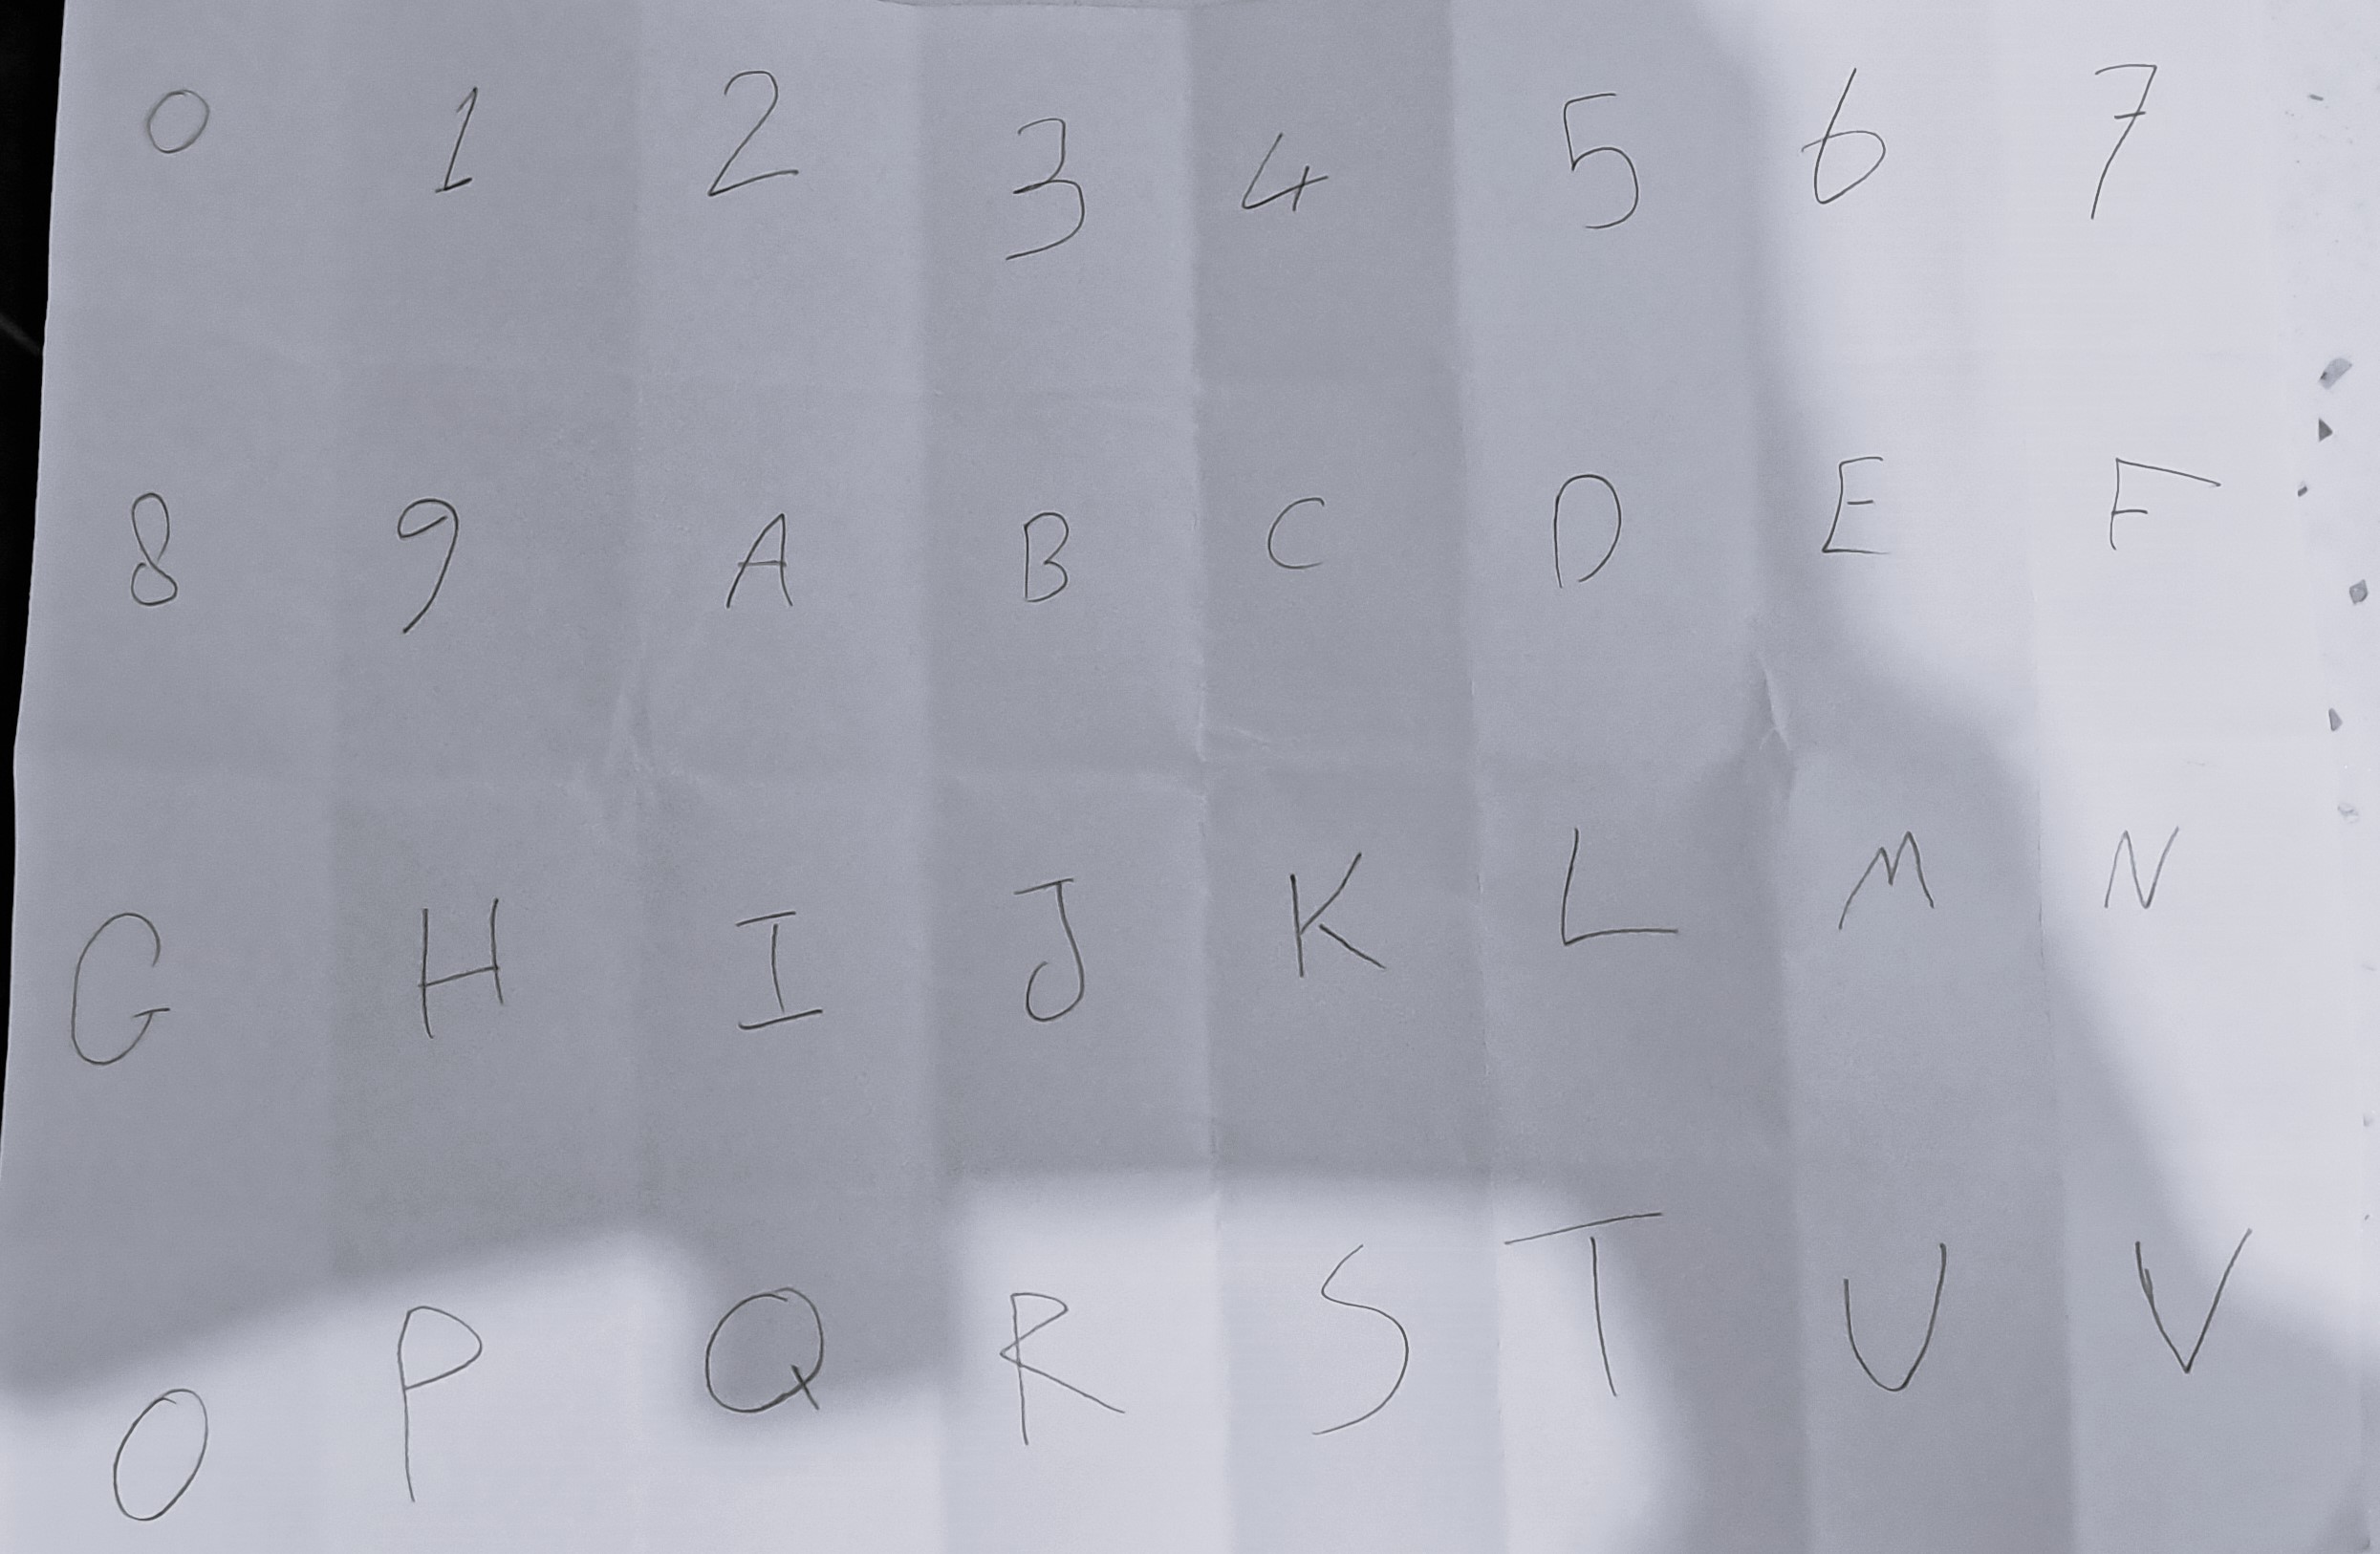 0 1 2 3 4 5 6 7
8 9 A B C D E F
G H I J K L M N
O P Q R S T U V